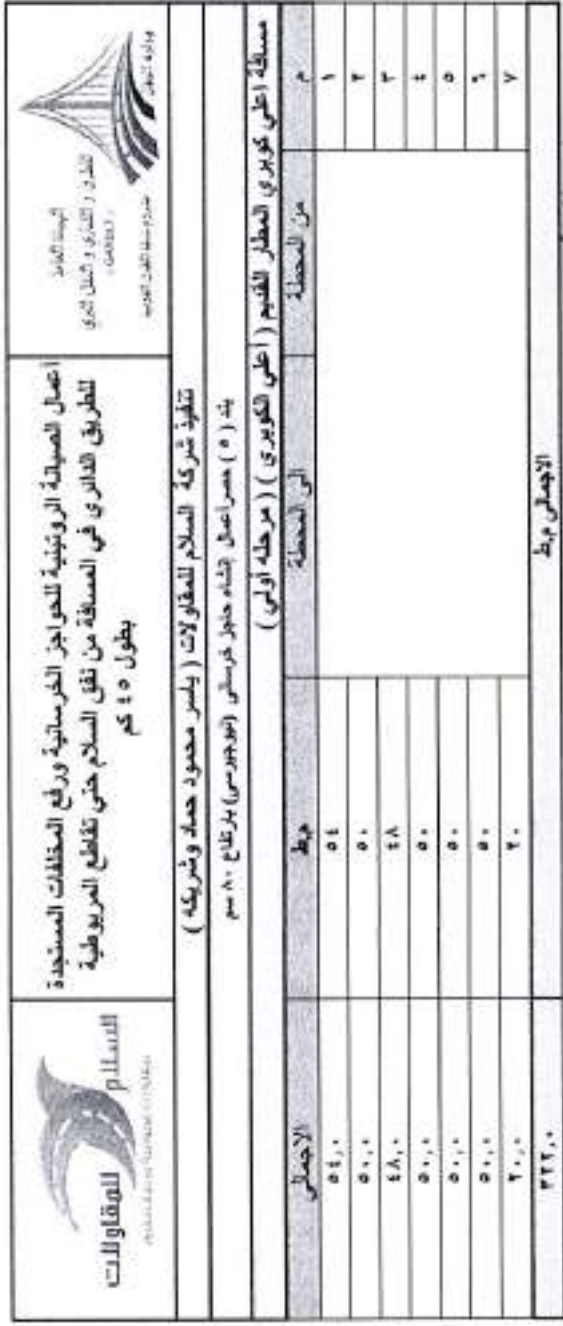 وزارة النقل
الهيئة العامة
للطرق و الكباري و النقل البري
( GARBLT )
اعمال الصيانة الروتينية للحواجز الخرسانية ورفع المخلفات المستجدة
للطريق الدائري في المسافة من نفق السلام حتى تقاطع المريوطية
بطول ٤٥ كم
السلام
للمقاولات
تنفيذ شركة السلام للمقاولات ( ياسر محمود حماد وشريكه )
بند ( ٥ ) حصر اعمال إنشاء حاجز خرساني (نيوجيرسي) بارتفاع ٨٠ سم
مسافة اعلي كوبري المطار القديم ( أعلى الكوبري ) ( مرحله أولي )
م من المحطة الى المحطة م.ط الاجمالي
١ ٥٤ ٥٤,٠
٢ ٥٠ ٥٠,٠
٣ ٤٨ ٤٨,٠
٤ ٥٠ ٥٠,٠
٥ ٥٠ ٥٠,٠
٦ ٥٠ ٥٠,٠
٧ ٢٠ ٢٠,٠
الاجمالي م.ط ٣٢٢,٠